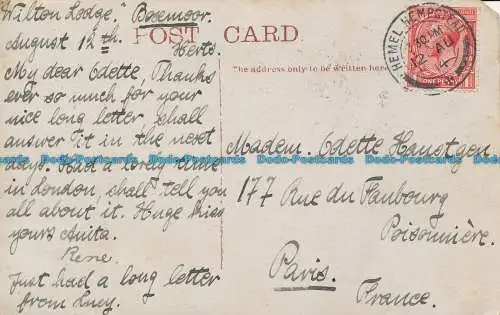 "Wilton Lodge," Boxmoor.
August 12th. Herts.
POST CARD.
The address only to be written here
My dear Odette, Thanks
ever so much for your
nice long letter, shall
answer it in the next
days. Had a lovely time
in London, shall tell you
all about it. Huge kiss
yours Anita.
René.
Just had a long letter
from Lucy.
HEMEL HEMPSTEAD
12 AU
ONE PENNY
Madem. Odette
177 Rue du Faubourg
Poissonnière.
Paris.
France.
Dodo-Postcards Dodo-Postcards Dodo-Postcards Dodo-Postcards